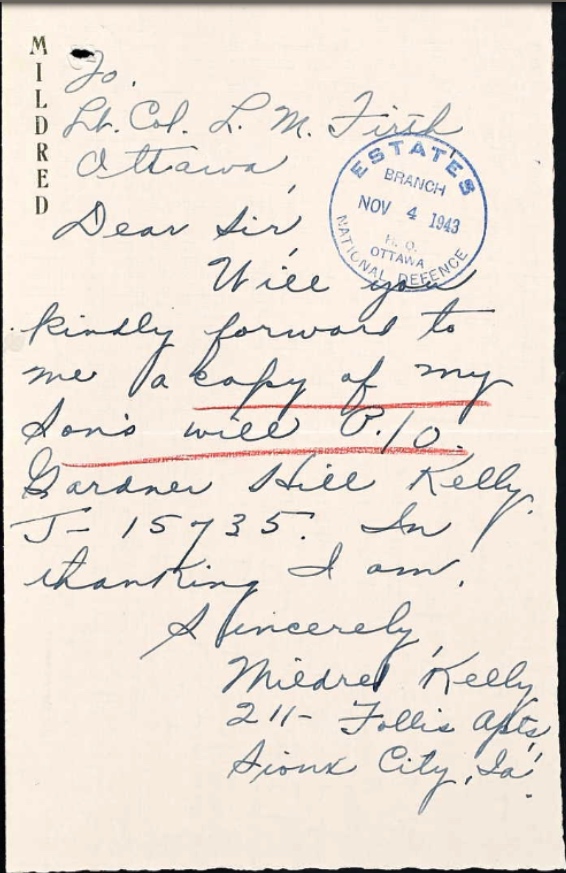 MILDRED
To.
Lt. Col. L. M. Firth
Ottawa,
ESTATES
BRANCH
NOV 4 1943
H. Q.
OTTAWA
NATIONAL DEFENCE
Dear Sir,
Will you
kindly forward to
me a copy of my
Son's will P./O.
Gardner Hill Kelly.
J- 15735. In
thanking I am,
Sincerely,
Mildred Kelly
211- Follis Apts,
Sioux City, Ia.